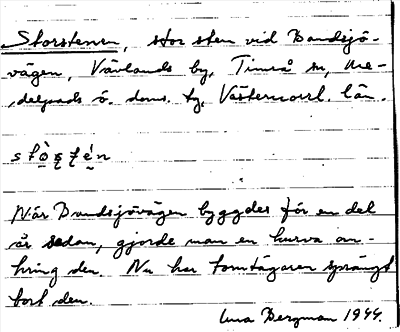 Storstenen, stor sten vid Bandsjö-
vägen, Vävlands by, Timrå sn, Me-
delpads ö. doms. tg, Västernorrl. län.
När Bandsjövägen byggdes för en del
år sedan, gjorde man en kurva om-
kring den. Nu har tomtägaren sprängt
bort den.
Bergman 1944.